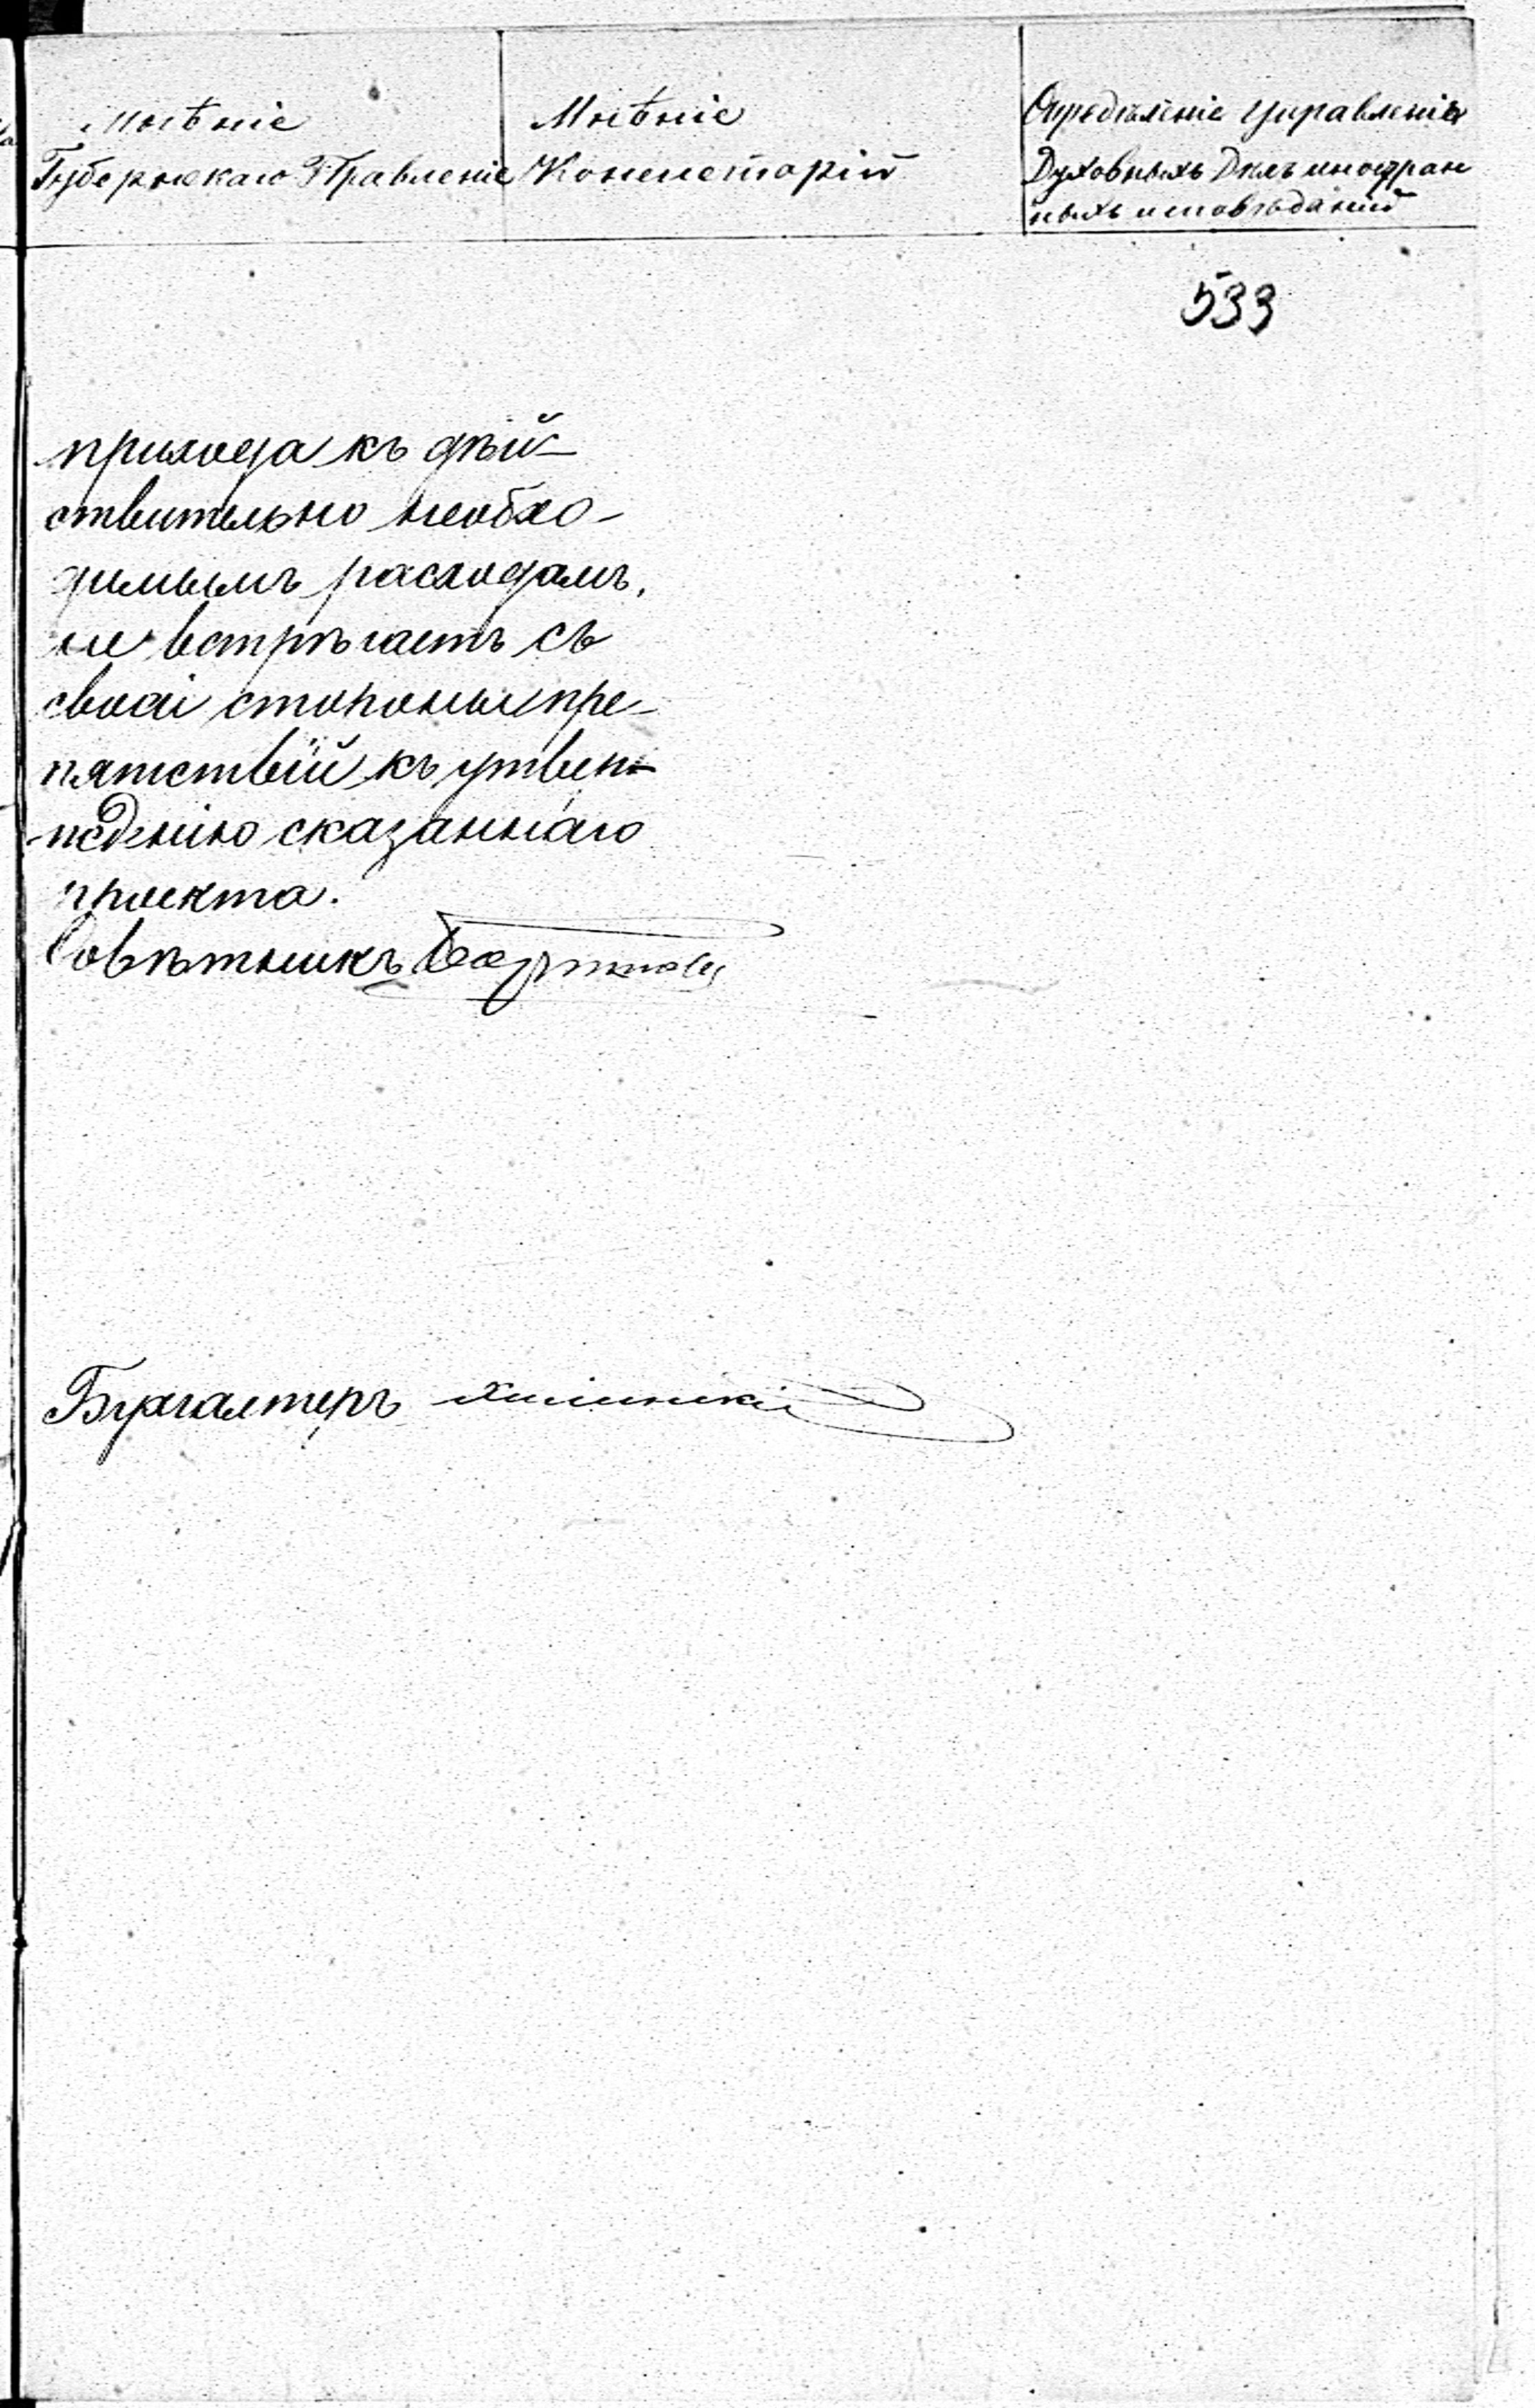 Мнѣніе
Губернскаго Правленія
Мнѣніе
Консисторіи
Опредѣленіе Управленія
Духовныхъ Дѣлъ иностран
ныхъ исповѣданій
533
прихода къ дѣй-
ствительно необхо-
димымъ расходамъ,
не встрѣчаетъ съ
своей стороны пре-
пятствій къ утвер-
жденію сказаннаго
проекта.
Совѣтникъ
Бухгалтеръ